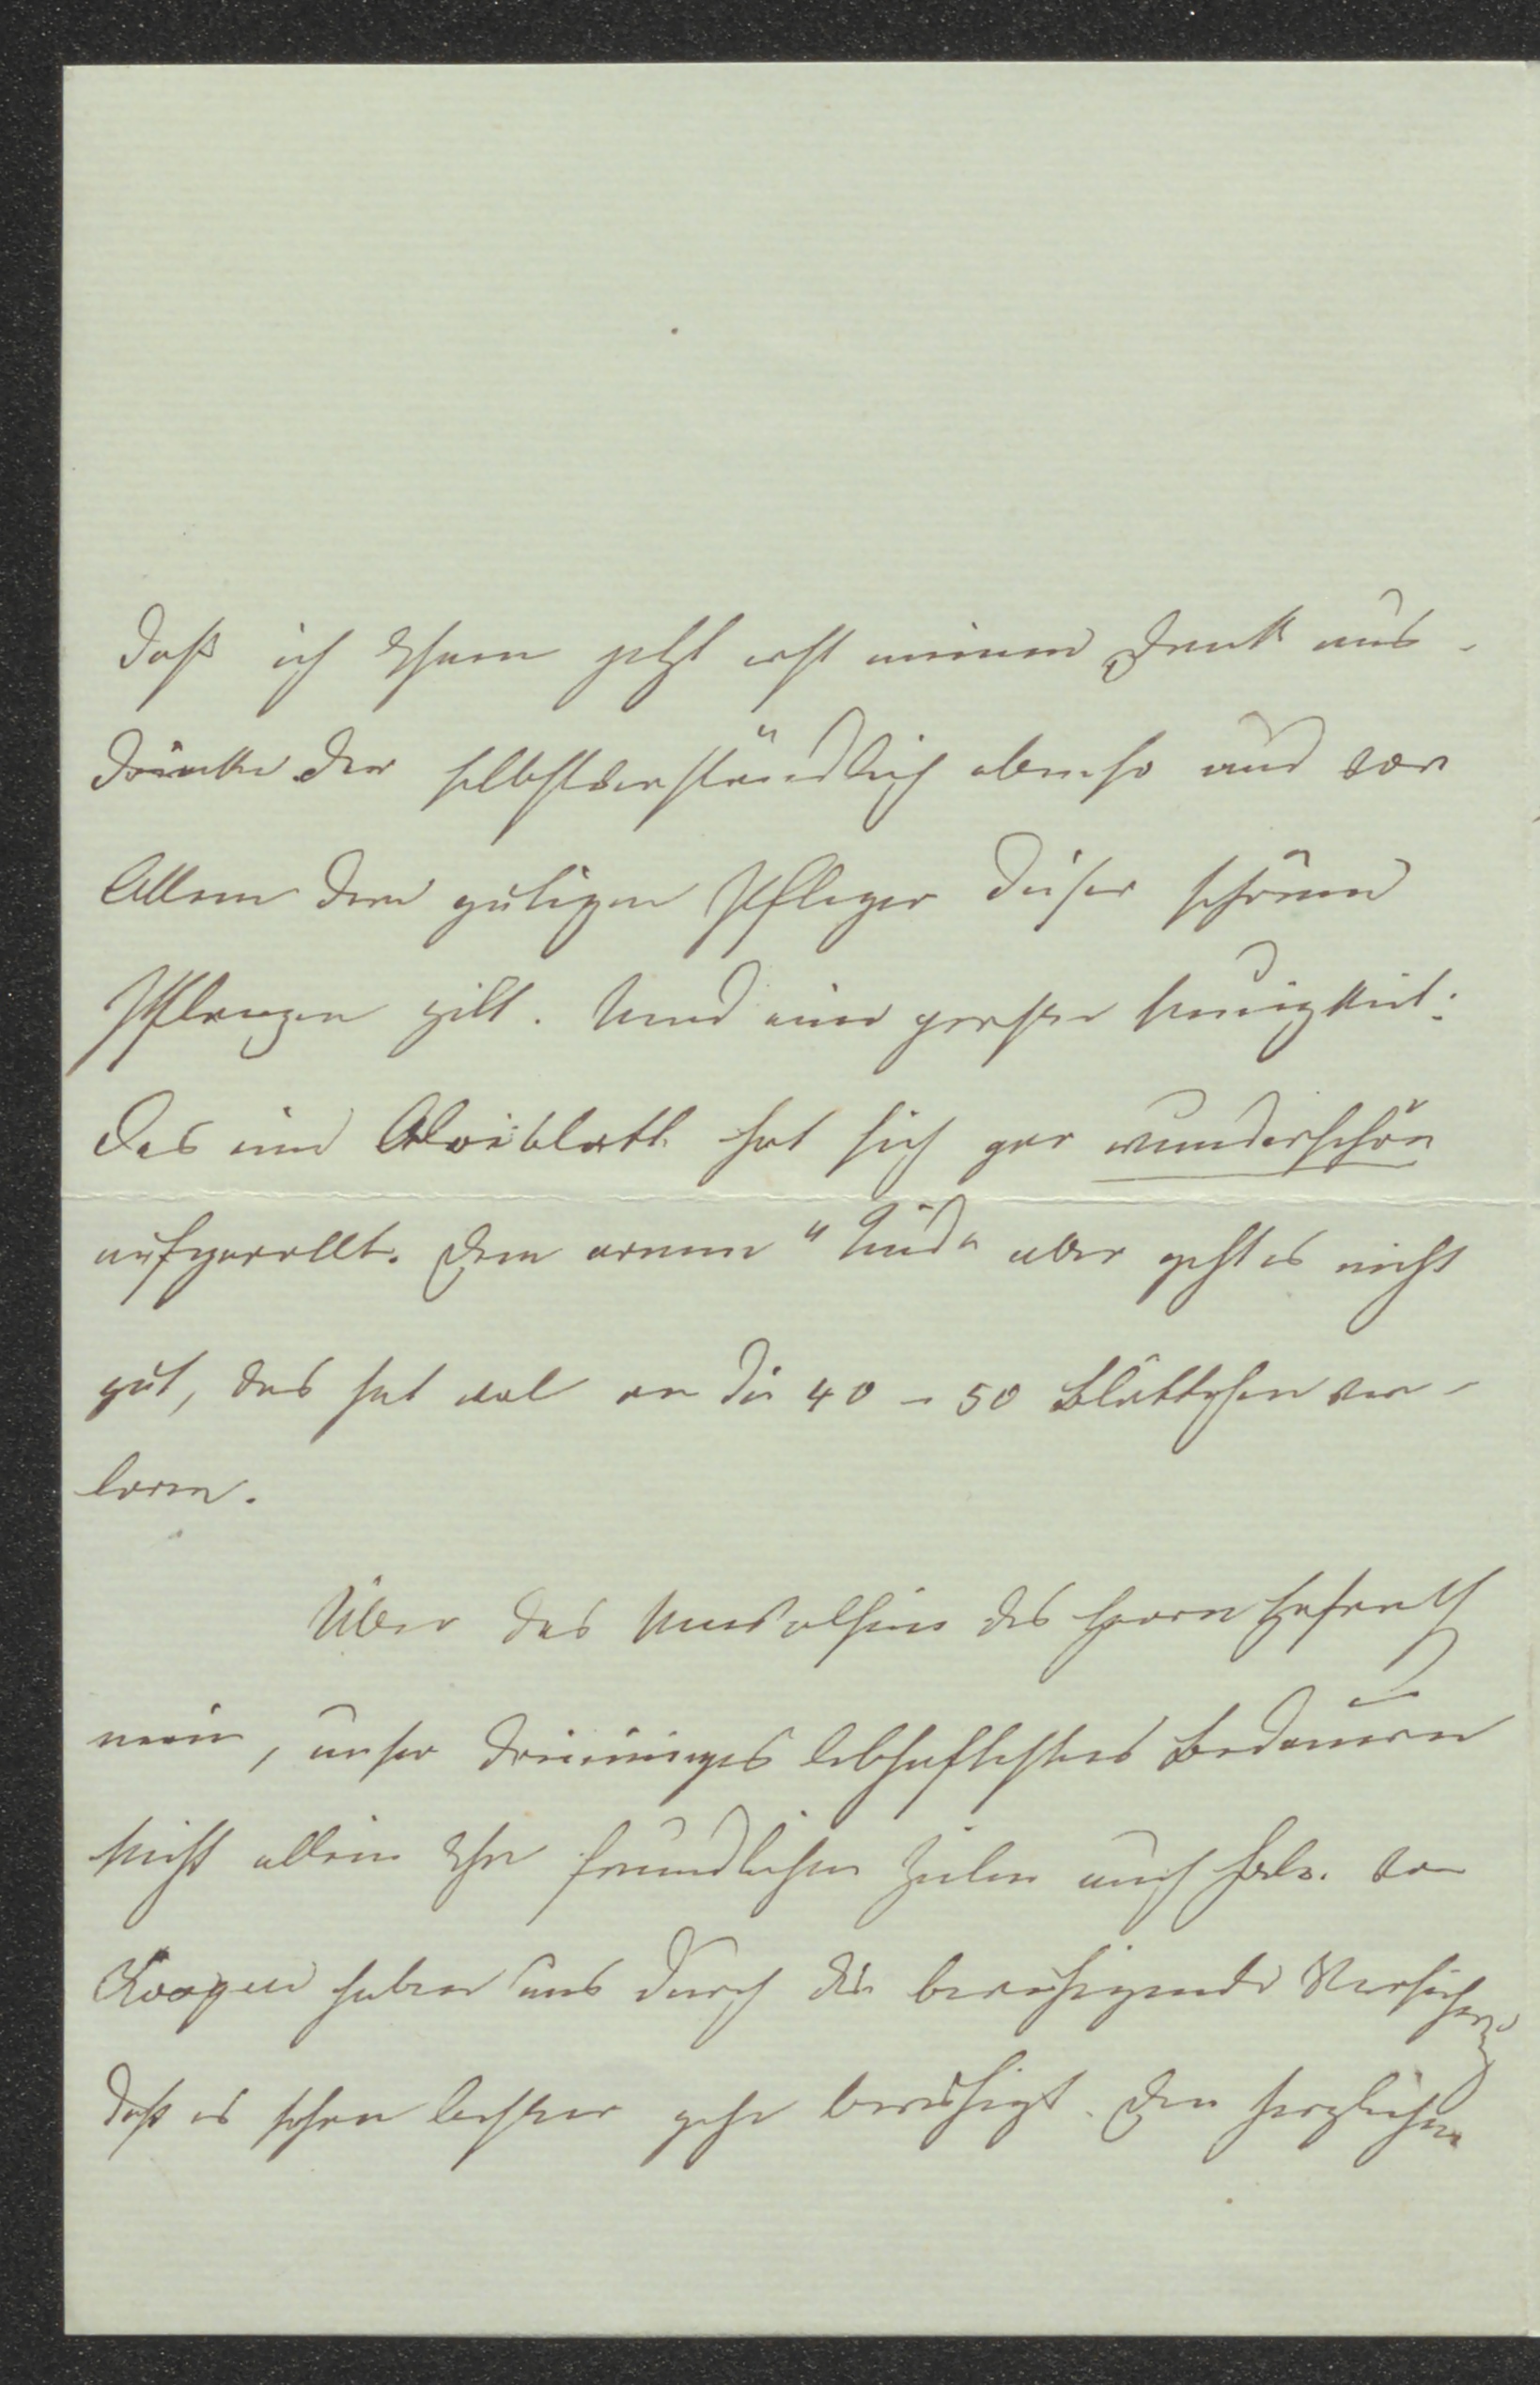 daß ich Ihnen jetzt erst meinen Dank aus-
drücke der selbstverständlich ebenso und vor
Allem dem gütigen Pfleger dieser schönen
Pflanzen gilt. Und eine große Neuigkeit:
Das eine Aloiblatt hat sich gar wunderschön
aufgerollt. Dem armen " aber geht es nicht
gut, das hat wol an die 40 - 50 Blättchen ver-
loren.
Über das Unwolsein des Herrn Hofrath
mein, unser dreieiniges lebhaftestes Bedauern
Nicht allein Ihre freundlichen Zeilen auch Frln. von
haben uns durch die beruhigende Versicherung
daß es schon besser gehe beruhigt. Den herzlichen